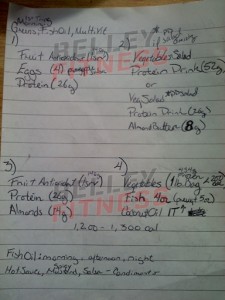 Greens, Fish Oil, Multi Vit
1)
Fruit Antioxidant
Eggs (4)
Protein (26g)
2)
Vegetables Salad
Protein Drink (52g)
or
Veg Salad
Protein Drink (26g)
Almond Butter (8g)
BELLEY
FITNESS
3)
Fruit Antioxidant
Protein (26g)
Almonds (14g)
4)
Vegetables (1 lb bag
Fish 4oz
Coconut Oil 1T
BELLEY
FITNESS
1,200 - 1,300 cal
Fish Oil: morning, afternoon, night
Hot Sauce, Mustard, Salsa - Condiments